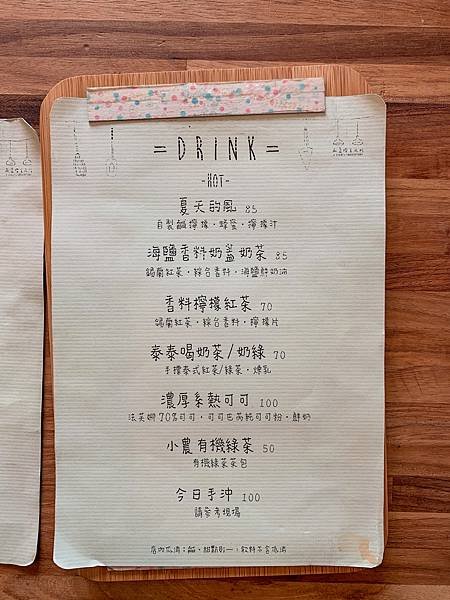 =DRINK=
-HOT-
夏天的風 85
自製鹹檸檬・蜂蜜・檸檬汁
海鹽香料奶蓋奶茶 85
錫蘭紅茶・綜合香料・海鹽鮮奶油
香料檸檬紅茶 70
錫蘭紅茶・綜合香料・檸檬片
泰泰喝奶茶/奶綠 70
手標泰式紅茶/綠茶・煉乳
濃厚系熱可可 100
法芙娜70%可可・可可巴芮純可可粉・鮮奶
小農有機綠茶 50
有機綠茶茶包
今日手沖 100
請參考現場
店內低消：鹹、甜點則一，飲料不含低消